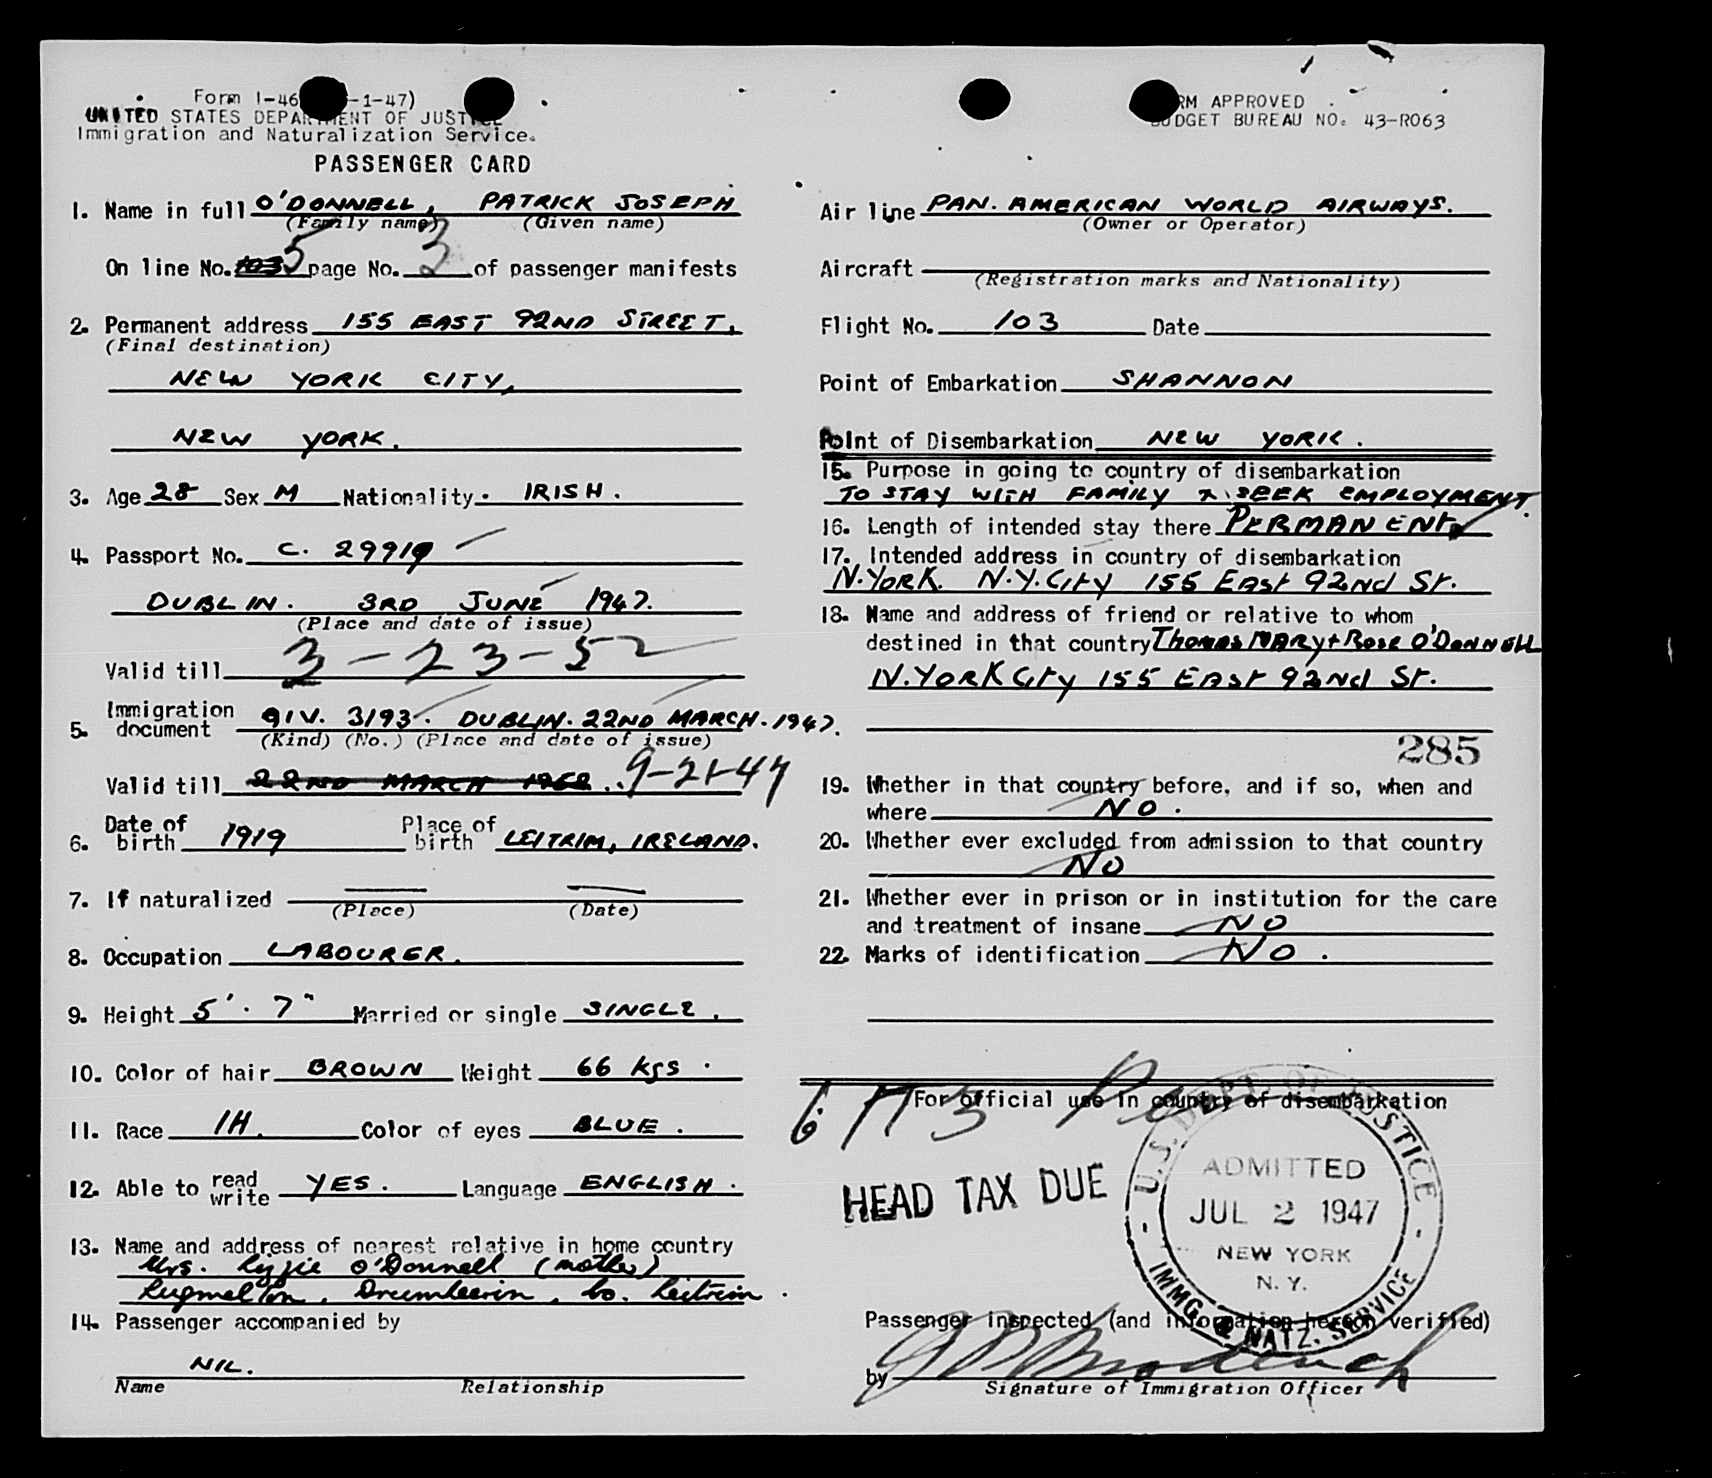 Form I-46 -1-47)
UNITED STATES DEPARTMENT OF JUSTICE
Immigration and Naturalization Service.
PASSENGER CARD
1. Name in full O'DONNELL, PATRICK JOSEPH
(Family name) (Given name)
On line No. 103 5 page No. 3 of passenger manifests
2. Permanent address 155 EAST 92ND STREET,
(Final destination)
NEW YORK CITY,
NEW YORK.
3. Age 28 Sex M Nationality. IRISH.
4. Passport No. C. 29919
DUBLIN. 3RD JUNE 1947.
(Place and date of issue)
Valid till 3-23-52
5. Immigration document QIV. 3193. DUBLIN. 22ND MARCH. 1947.
(Kind) (No.) (Place and date of issue)
Valid till 22ND MARCH 1952 .. 9-21-47
6. Date of birth 1919 Place of birth LEITRIM, IRELAND.
7. If naturalized
(Place) (Date)
8. Occupation LABOURER.
9. Height 5'. 7" Married or single SINGLE.
10. Color of hair BROWN Weight 66 kgs.
11. Race IH. Color of eyes BLUE.
12. Able to read write YES. Language ENGLISH.
13. Name and address of nearest relative in home country
Mrs. Lizzie O'Donnell (mother)
Drumkeerin, Co. Leitrim.
14. Passenger accompanied by
NIL.
Name Relationship
RM APPROVED
BUDGET BUREAU NO. 43-R063
Air line PAN. AMERICAN WORLD AIRWAYS.
(Owner or Operator)
Aircraft
(Registration marks and Nationality)
Flight No. 103 Date
Point of Embarkation SHANNON
Point of Disembarkation NEW YORK.
15. Purpose in going to country of disembarkation
TO STAY WITH FAMILY & SEEK EMPLOYMENT.
16. Length of intended stay there PERMANENT
17. Intended address in country of disembarkation
N. YORK. N.Y. City 155 East 92nd St.
18. Name and address of friend or relative to whom
destined in that country Thomas MARY + Rose O'Donnell
N. YORK City 155 East 92nd St.
285
19. Whether in that country before, and if so, when and
where NO.
20. Whether ever excluded from admission to that country
NO
21. Whether ever in prison or in institution for the care
and treatment of insane NO
22. Marks of identification NO.
For official use in country of disembarkation
HEAD TAX DUE
U.S. DEPT. OF JUSTICE
ADMITTED
JUL 2 1947
NEW YORK
N. Y.
IMMG. & NATZ. SERVICE
Passenger inspected (and information hereon verified)
by
Signature of Immigration Officer